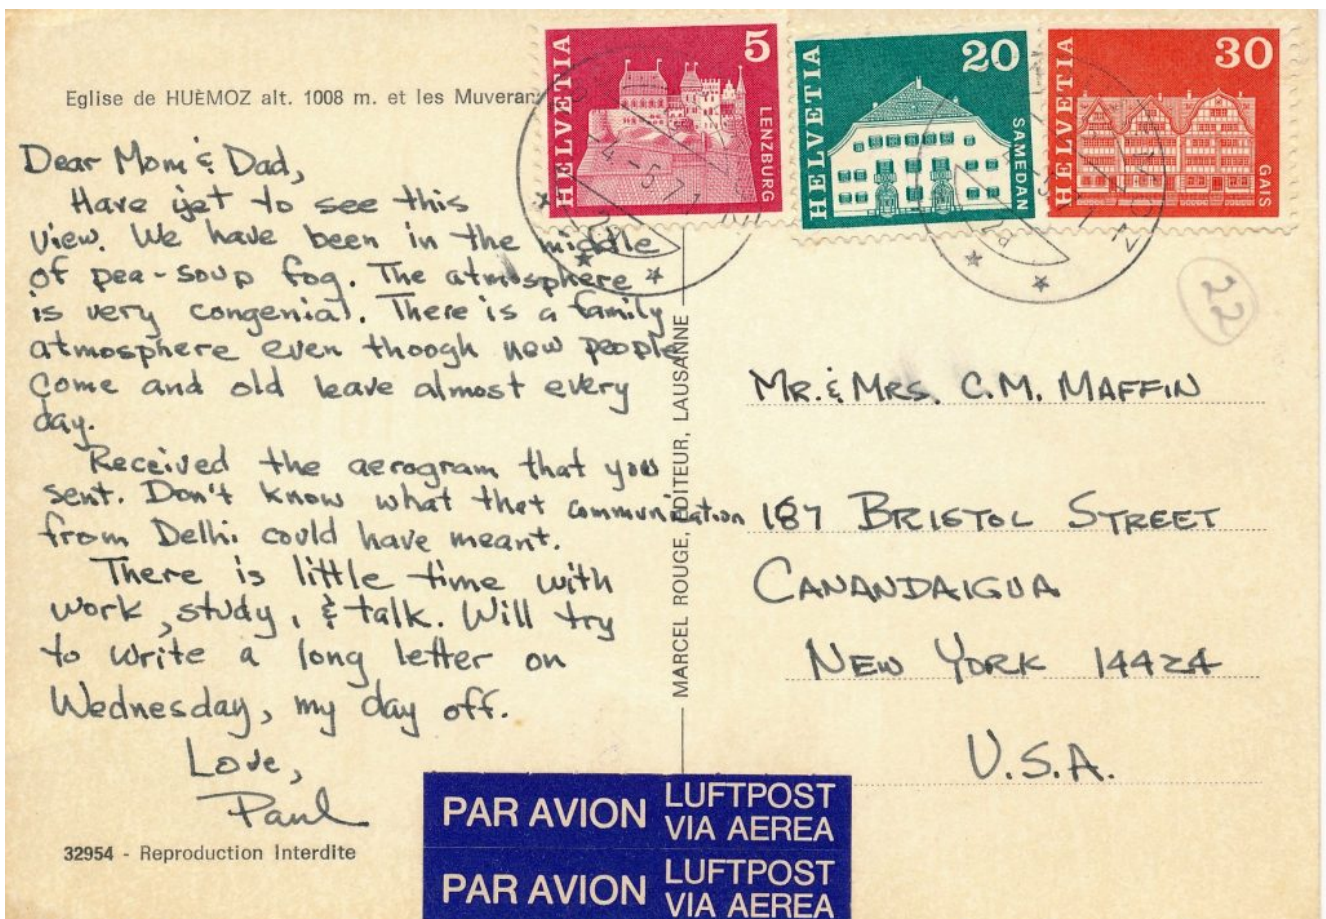 HELVETIA 5 LENZBURG
HELVETIA 20 SAMEDAN
HELVETIA 30 GAIS
Eglise de HUÈMOZ alt. 1008 m. et les Muveran
Dear Mom & Dad,
Have yet to see this
view. We have been in the middle
of pea-soup fog. The atmosphere
is very congenial. There is a family
atmosphere even though new people
come and old leave almost every
day.
Received the aerogram that you
sent. Don't know what that communication
from Delhi could have meant.
There is little time with
work, study, & talk. Will try
to write a long letter on
Wednesday, my day off.
Love,
Paul
32954 - Reproduction Interdite
MARCEL ROUGE, EDITEUR, LAUSANNE
22
MR. & MRS. C.M. MAFFIN
187 BRISTOL STREET
CANANDAIGUA
NEW YORK 14424
U.S.A.
PAR AVION LUFTPOST VIA AEREA
PAR AVION LUFTPOST VIA AEREA